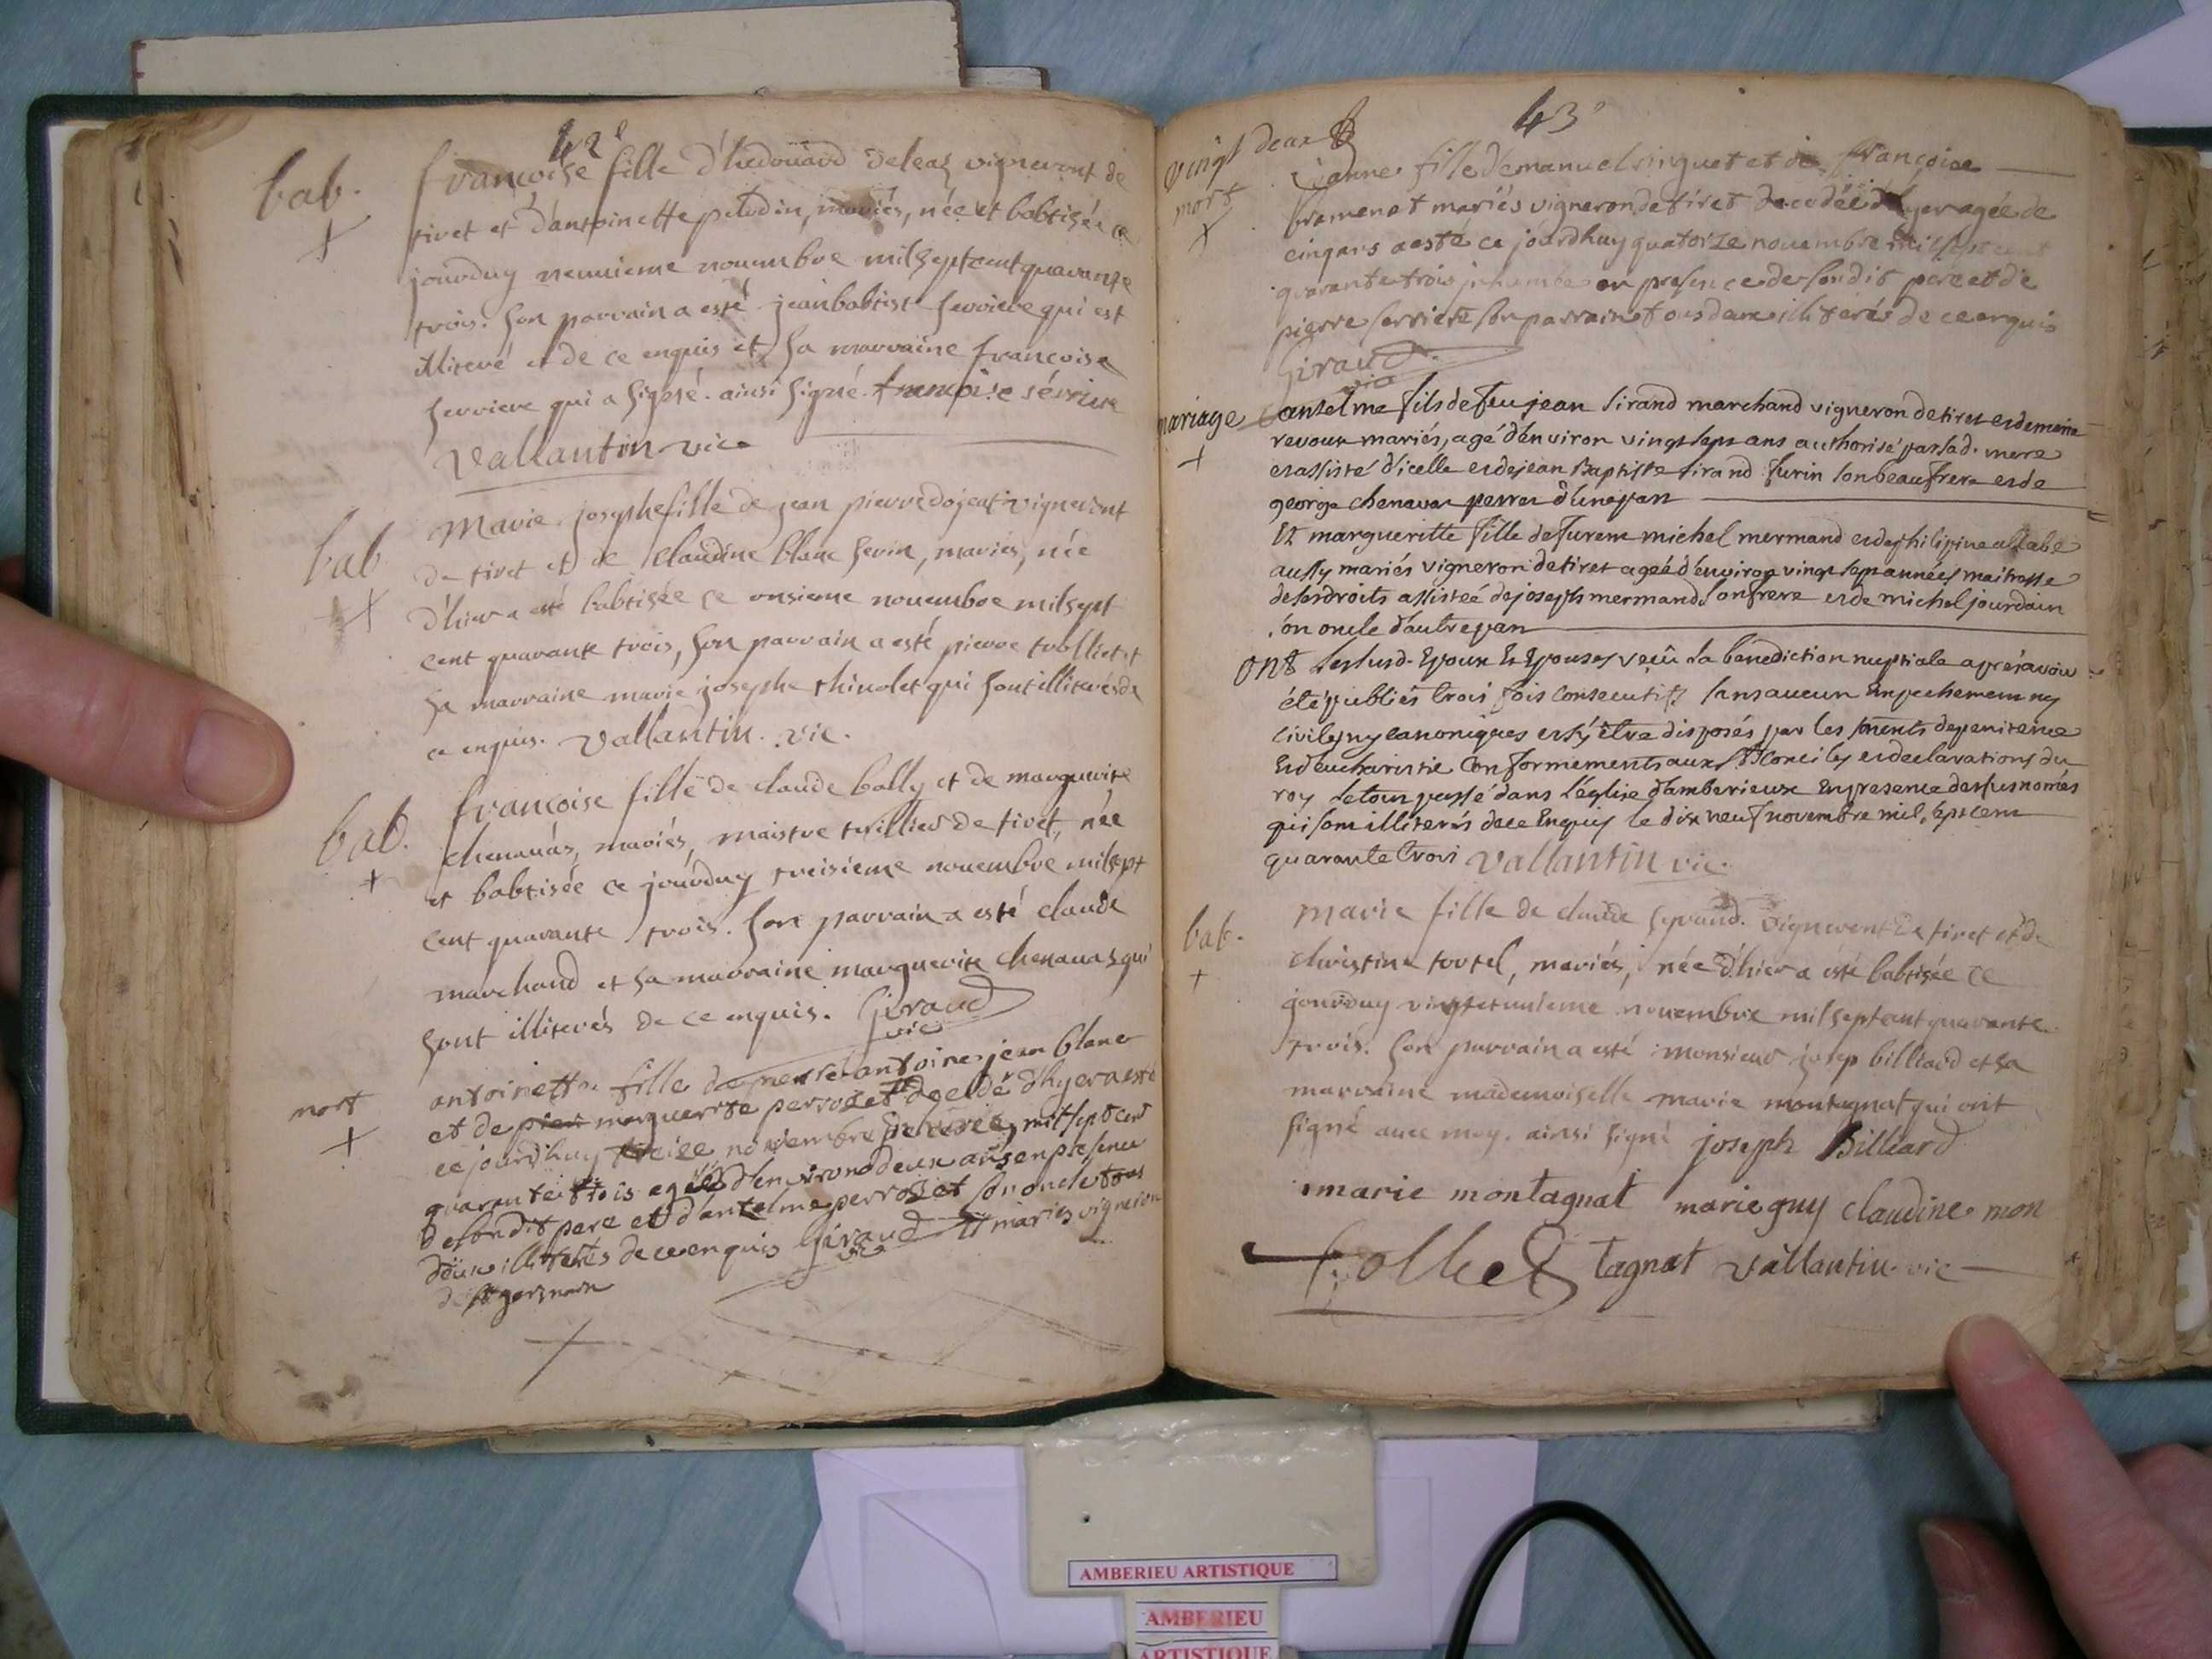 42
bab.
françoise fille d'hedoüard deleaz vigneront de
tiret et d'antoinette pelodin, mariés, née et babtisée ce
jourduy neuvieme novembre mil sept cent quarante
trois. son parrain a esté jean babtist serriere qui est
illiteré de ce enquis et sa marraine françoise
serriere qui a signé. ainsi signé. françoise sérriere
Vallantin vic
bab
Marie josephe fille de jean pierre dojeat vigneront
de tiret et de claudine blanc serin, mariés, née
d'hier a esté babtisée ce onsieme novembre mil sept
cent quarante trois, son parrain a esté pierre trolliet et
sa marraine marie josephe thinolet qui sont illiterés de
ce enquis. Vallantin. vic.
bab.
françoise fille de claude bally et de marguerite
chenavás, mariés, maistre de tiret, née
et babtisée ce jourduy treisieme novembre mil sept
cent quarante trois. son parrain a esté claude
marchand et sa marraine marguerite chenavas qui
sont illiterés de ce enquis. Giraud
vic
mort
antoinette fille de pierre antoine jean blanc
et de marguerite perrozet decedé d'hyer a esté
ce jourdhuy treize novembre mil sept cent
quarante trois agée d'environ deux ans en presence
de sondit pere et d'antelme perrozet son oncle tous
deux illiterés de ce enquis Giraud mariés vigneron
vic
de st germain
43
vingt deux
mort
jeanne fille demanuel singuet et de françoise
bramenat mariés vigneron de tiret decedée d'hyer agée de
cinq ans a esté ce jourdhuy quatorze novembre mil sept cent
quarante trois inhumée en presence de sondit pere et de
pierre serriere son parrain tous deux illiterés de ce enquis
Giraud
vic
mariage
antelme fils de feu jean sirand marchand vigneron de tiret et de marie
revoux mariés, agé d'environ vingt sept ans authorisé par lad. mere
et assisté d'icelle et de jean Baptiste sirand furin son beaufrere et de
george chenavas perret d'une part
Et margueritte fille de furent michel mermand et de philipine allabe
aussy mariés vigneron de tiret ageé d'environ vingt sept années maitresse
de ses droits assisteé de joseph mermand son frere et de michel jourdain
son oncle d'autre part
ont lesd. Epoux Et Epouses reçû la benediction nuptiale aprés avoir
été publiés trois fois consecutifs sans aucun Empechement ny
civils ny canoniques et s'y être disposés par les sments de penitence
Et d'eucharistie Conformements aux Sts Conciles et declarations du
roy le tout passé dans l'église d'amberieux En presence des susnomés
qui sont illiterés de ce Enquis le dix neuf novembre mil sept cent
quarante trois Vallantin vic.
bab.
marie fille de claude vigneront de tiret et de
christine tortel, mariés, née d'hier a esté babtisée ce
jourduy vingt et unieme novembre mil sept cent quarante
trois. son parrain a esté monsieur josep billiard et sa
marraine mademoiselle marie montagnat qui ont
signé avec moy. ainsi signé joseph Billiard
marie montagnat marie guy claudine mon
tagnat Vallantin vic
AMBERIEU ARTISTIQUE
AMBERIEU
ARTISTIQUE